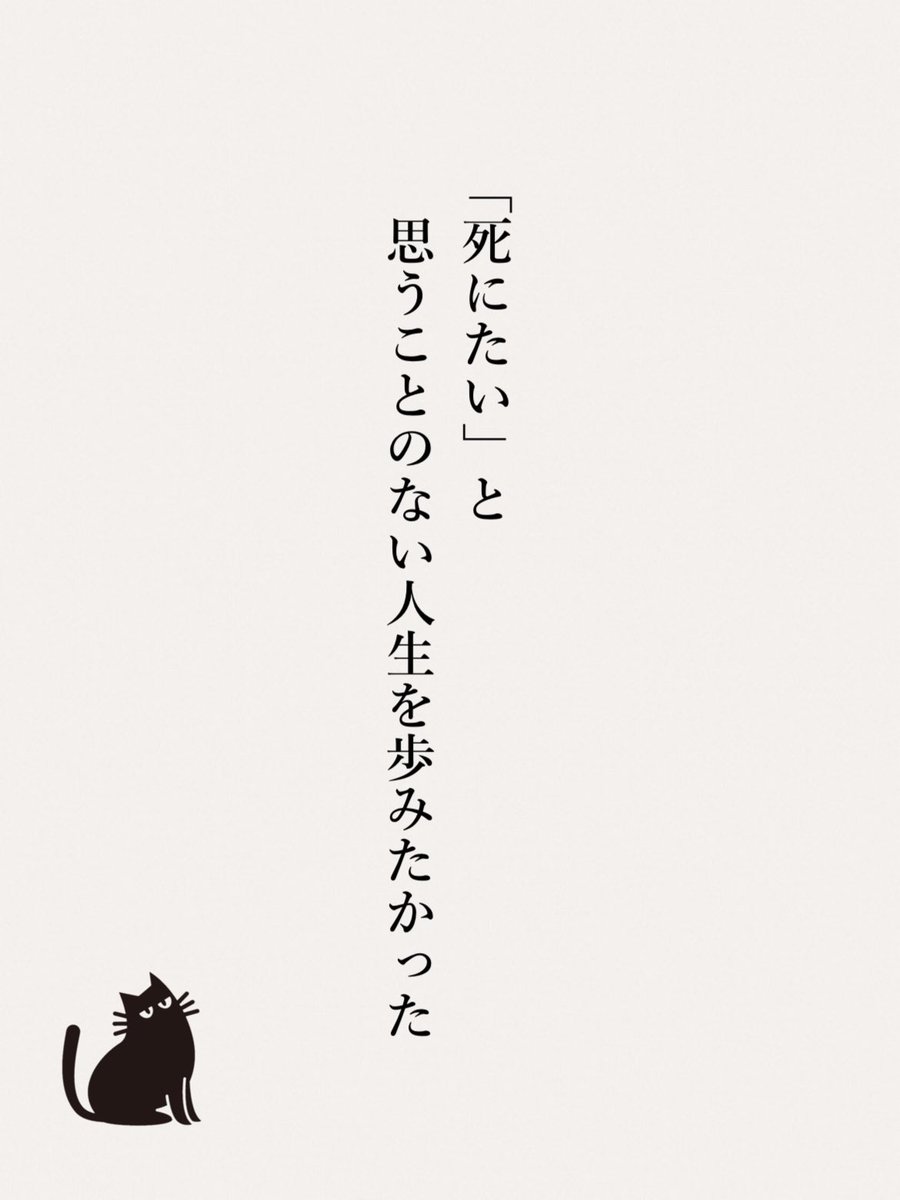 「死にたい」と
思うことのない人生を歩みたかった